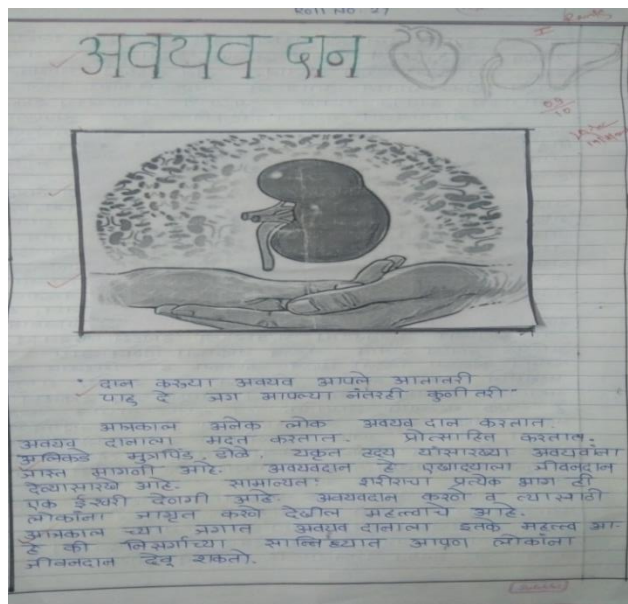 Roll No. 27
अवयव दान
09/10
" दान करूया अवयव आपले आतातरी
पाहू दे जग आपल्या नंतरही कुणीतरी "
आजकाल अनेक लोक अवयव दान करतात.
अवयव दानाला मदत करतात. प्रोत्साहित करतात.
अलिकडे मुत्रपिंड, डोळे, यकृत हृदय यांसारख्या अवयवांना
जास्त मागणी आहे. अवयवदान हे एखाद्याला जीवनदान
देण्यासारखे आहे. सामान्यतः शरीराचा प्रत्येक भाग ही
एक ईश्वरी देणगी आहे. अवयवदान करणे व त्यासाठी
लोकांना जागृत करणे देखील महत्त्वाचे आहे.
आजकाल च्या जगात अवयव दानाला इतके महत्त्व आ-
हे की निसर्गाच्या सान्निध्यात आपण लोकांना
जीवनदान देवू शकतो.